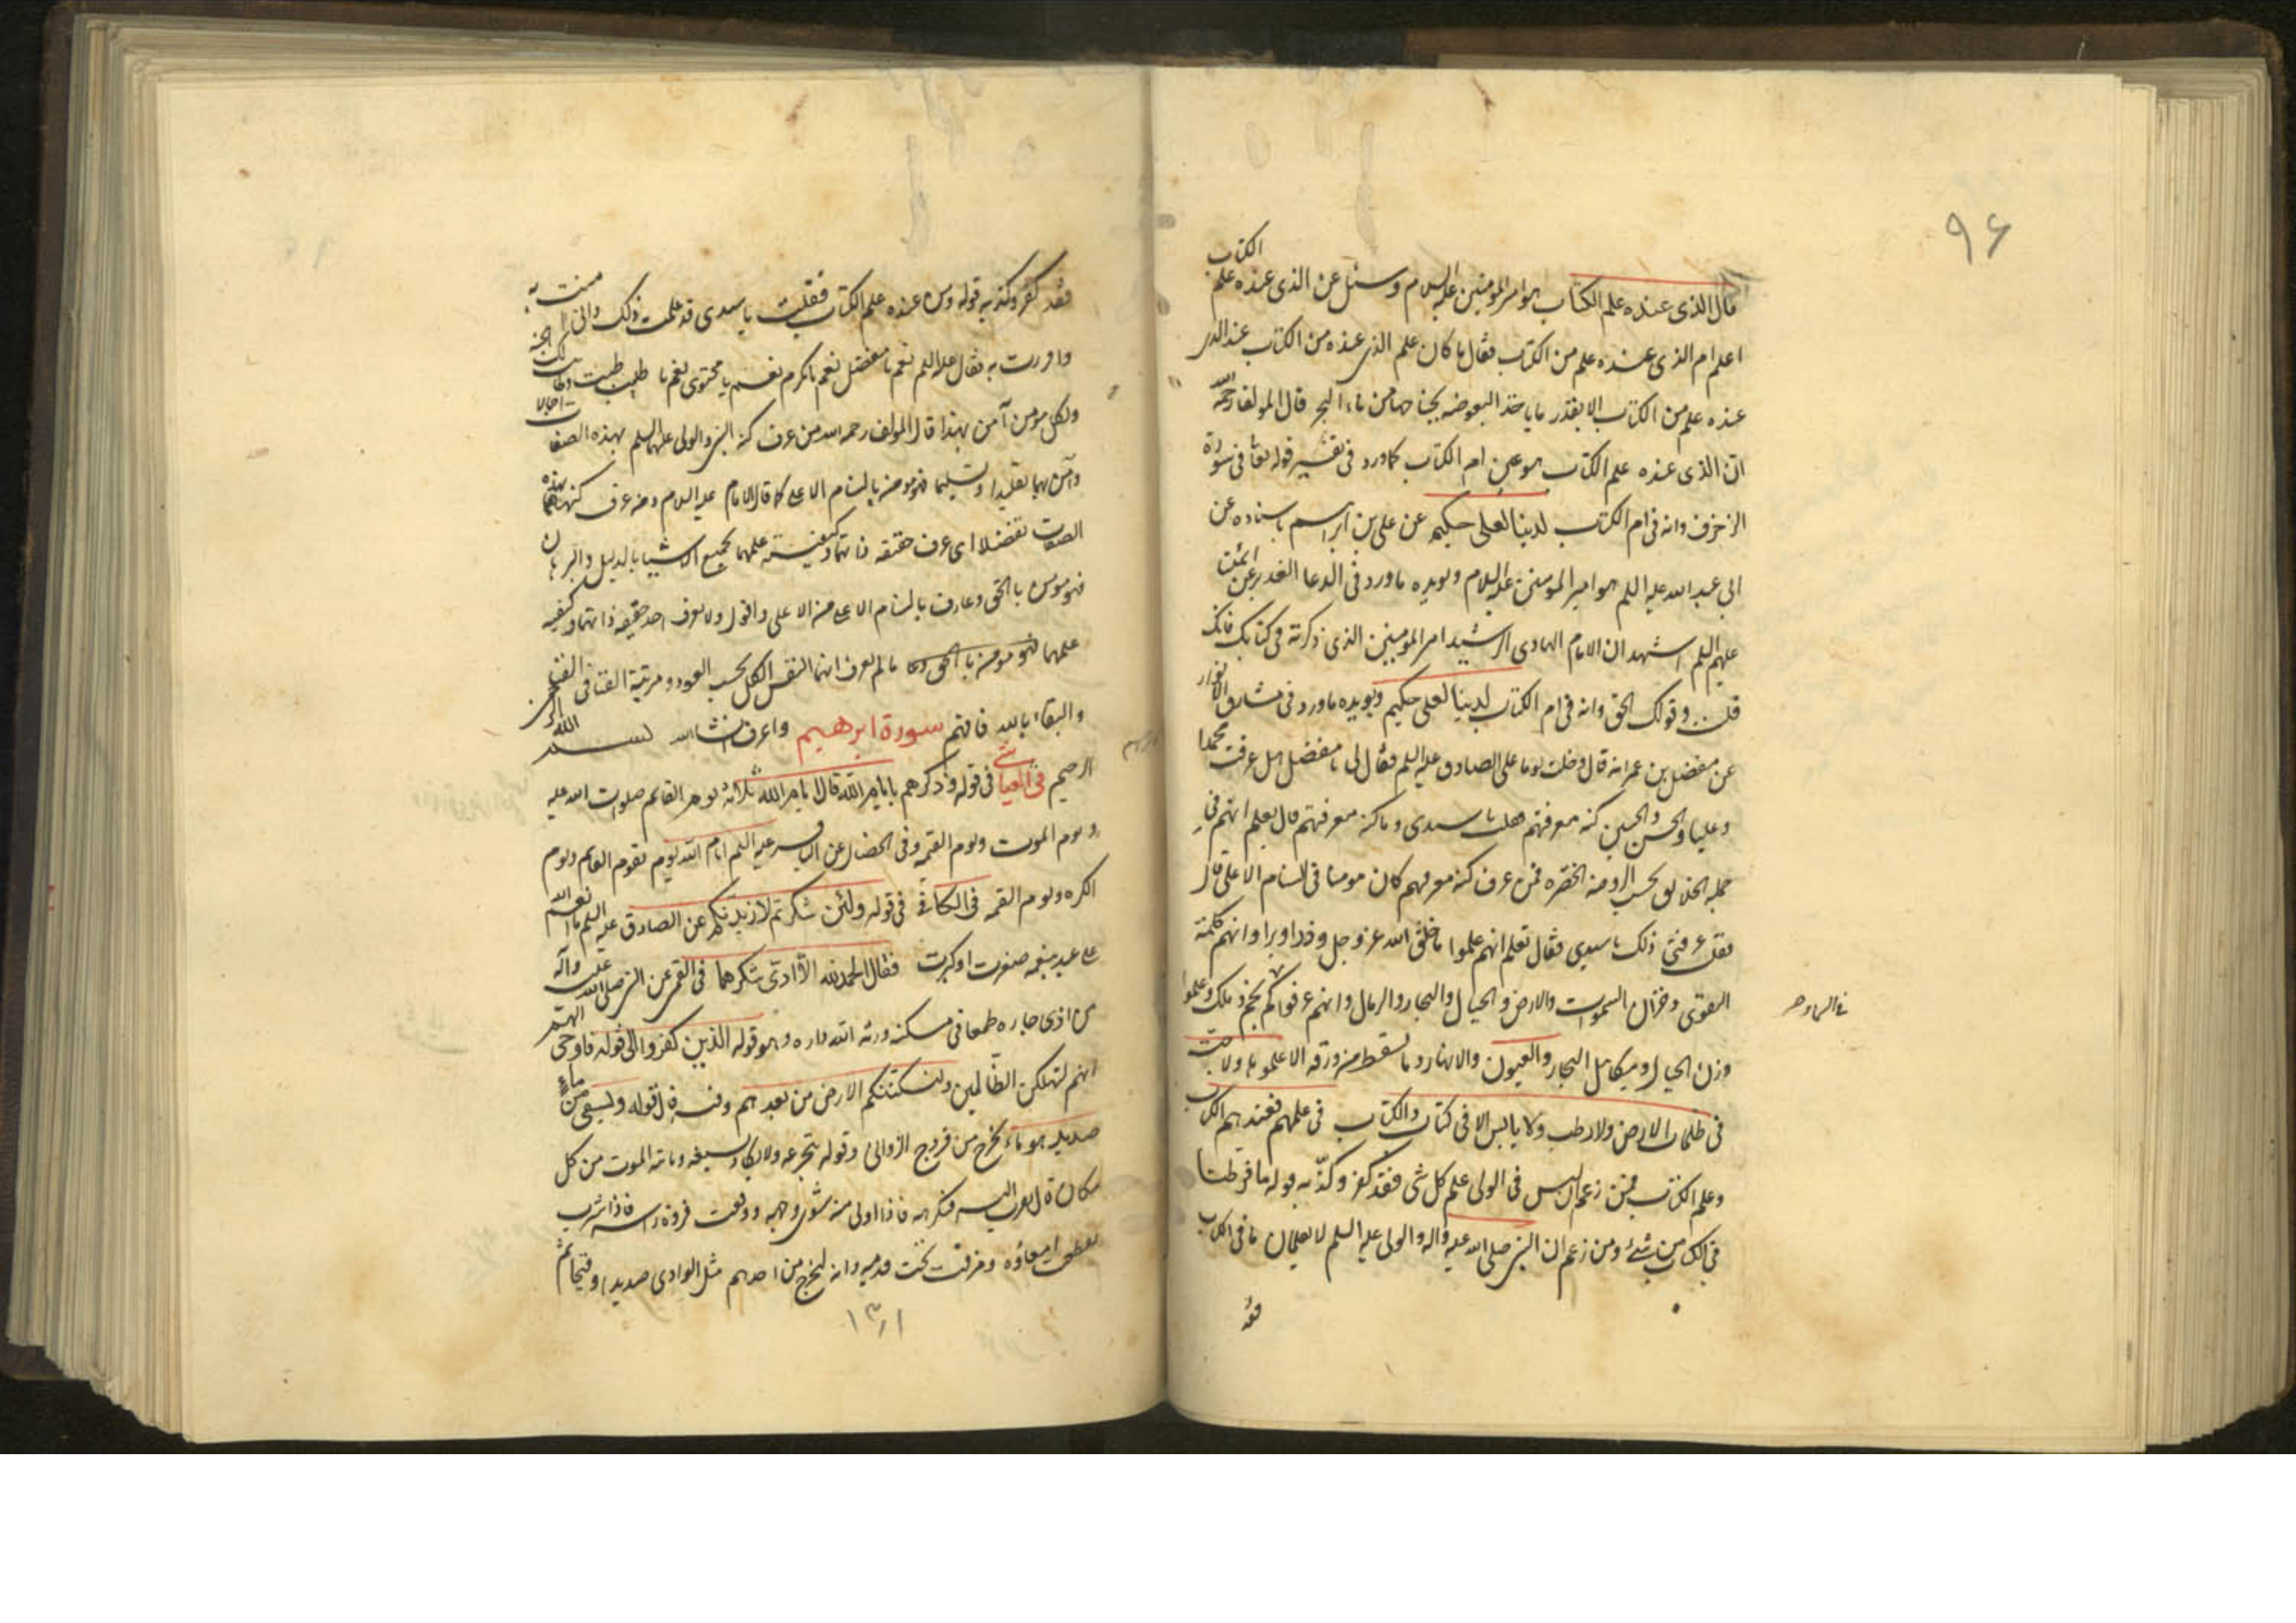 ۹۶
قال الذى عنده علم الكتاب هو امير المومنين عليه السلام وسئل عن الذى عنده علم الكتاب
اعلم ام الذى عنده علم من الكتاب فقال ما كان علم الذى عنده من الكتاب عند الذى
عنده علم من الكتاب الا بقدر ما ياخذ البعوضه بجناحها من ماء البحر قال المولف رحمه الله
ان الذى عنده علم الكتاب هو عين ام الكتاب كما ورد فى تفسير قوله تعا فى سورة
الزخرف وانه فى ام الكتاب لدينا لعلى حكيم عن على بن ابراهيم باسناده عن
ابى عبد الله عليه السلم هو امير المومنين عليه السلام ويويده ما ورد فى الدعا الغدير عن ائمتنا
عليهم السلم اشهد ان الامام الهادى الرشيد امير المومنين الذى ذكرته فى كتابك فانك
قلت وقولك الحق وانه فى ام الكتاب لدينا لعلى حكيم ويويده ما ورد فى مشارق الانوار
عن مفضل بن عمر انه قال دخلت يوما على الصادق عليه السلم فقال لى يا مفضل هل عرفت محمدا
وعليا والحسن والحسين كنه معرفتهم قلت يا سيدى وما كنه معرفتهم قال تعلم انهم فى
الخلايق بحسب الروضه الخضره فمن عرف كنه معرفتهم كان مومنا فى السنام الاعلى قال
فقلت عرفنى ذلك يا سيدى فقال تعلم انهم علموا ما خلق الله عز وجل وذرا وبرا وانهم كلمة
التقوى وخزان السموات والارض والجبال والبحار والرمال وانهم عرفوا كم نجم وملك وعلموا
وزن الجبال وميكائيل البحار والعيون والانهار وما تسقط من ورقه الا علموها ولا حبت
فى ظلمات الارض ولا رطب ولا يابس الا فى كتاب والكتاب فى علمهم فعندهم الكتاب
وعلم الكتاب فمن زعم ان ليس فى الولى علم كل شى فقد كفر وكذّب بقوله ما فرطنا
فى الكتاب من شئ ومن زعم ان النبى صلى الله عليه واله والولى عليه السلم لا يعلمان ما فى الكتاب
فقد
فقد كفر وكذب به قوله ومن عنده علم الكتاب فقلت يا سيدى قد علمت ذلك وانى امنت به
واقررت به فقال عليه السلم نعم يا مفضل نعم يا مكرم نعم يا محتوى نعم يا طيب طبت وطابت لك الجنه
ولكل مومن آمن بهذا قال المولف رحمه الله من عرف كنه النبى والولى عليهما السلم بهذه الصفات اجمالا
وآمن بهما تقليدا وتسليما فهو مومن بالسنام الاعلى كما قال الامام عليه السلام ومن عرف كنههما بهذه
الصفات تفصيلا اى عرف حقيقه ذاتهما وكيفية علمهما بجميع الاشيا بالدليل والبرهان
فهو مومن بالحق وعارف بالسنام الاعلى من الاعلى واقول ولا يعرف احد حقيقه ذاتهما وكيفيه
علمهما فهو مومن بالحق ما لم يعرف انهما النفس الكل بحسب العود ومرتبة الفنا فى الله
والبقاء بالله فافهم سورة ابرهيم واعرف انشا الله بسم الله الرحمن
الرحيم فى العياشى فى قوله وذكرهم بايام الله قال ايام الله ثلاثة يوم القائم صلوات الله عليه
ويوم الموت ويوم القيمه وفى الخصال عن الباقر عليه السلم ايام الله يوم يقوم القائم ويوم
الكره ويوم القيمه فى الكافى فى قوله ولئن شكرتم لازيدنكم عن الصادق عليه السلم ما انعم الله
على عبد بنعمه صغرت او كبرت فقال الحمد لله الا ادى شكرها فى القمى عن النبى صلى الله عليه وآله
من اذى جاره طمعا فى مسكنه ورثه الله داره وهو قوله الذين كفروا الى قوله فاوحى اليهم
انهم لنهلكن الظالمين ولنسكننكم الارض من بعدهم وفيه قال قوله ويسقى من ماء
صديد هو ماء يخرج من فروج الزوانى وقوله يتجرعه ولا يكاد يسيغه وياته الموت من كل
مكان قال يقرب اليه فيكرهه فاذا ادنى منه شوى وجهه ووقعت فروة راسه فاذا شرب
تقطعت امعاؤه ومزقت تحت قدميه وانه ليخرج من احدهم مثل الوادى صديدا وقيحا ثم